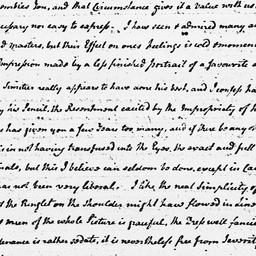 ombies You, and that Circumstance gives it a Value with us
uebury nor easy to express. I have seen & admired many, a
d Masters, but this Effect on ones feelings is cold & momen
Impression made by a less finished Portrait of a favourite a
Smities really appears to have done his best, and I confess ha
by his Pencil. the Resentment excited by the Impropriety of h
has given you a few Years too many, and if there be any or
is in not having transfused into the Eyes, the exact and full
nals, but this I believe can seldom be done, except in Ca
has not been very liberal. I like the neat Simplicity of
the Ringlet on the Shoulder might have flowed in dimi
I men of the whole Picture is graceful, the Dress well fancied
derance is rather sedate, it is nevertheless free from Severity